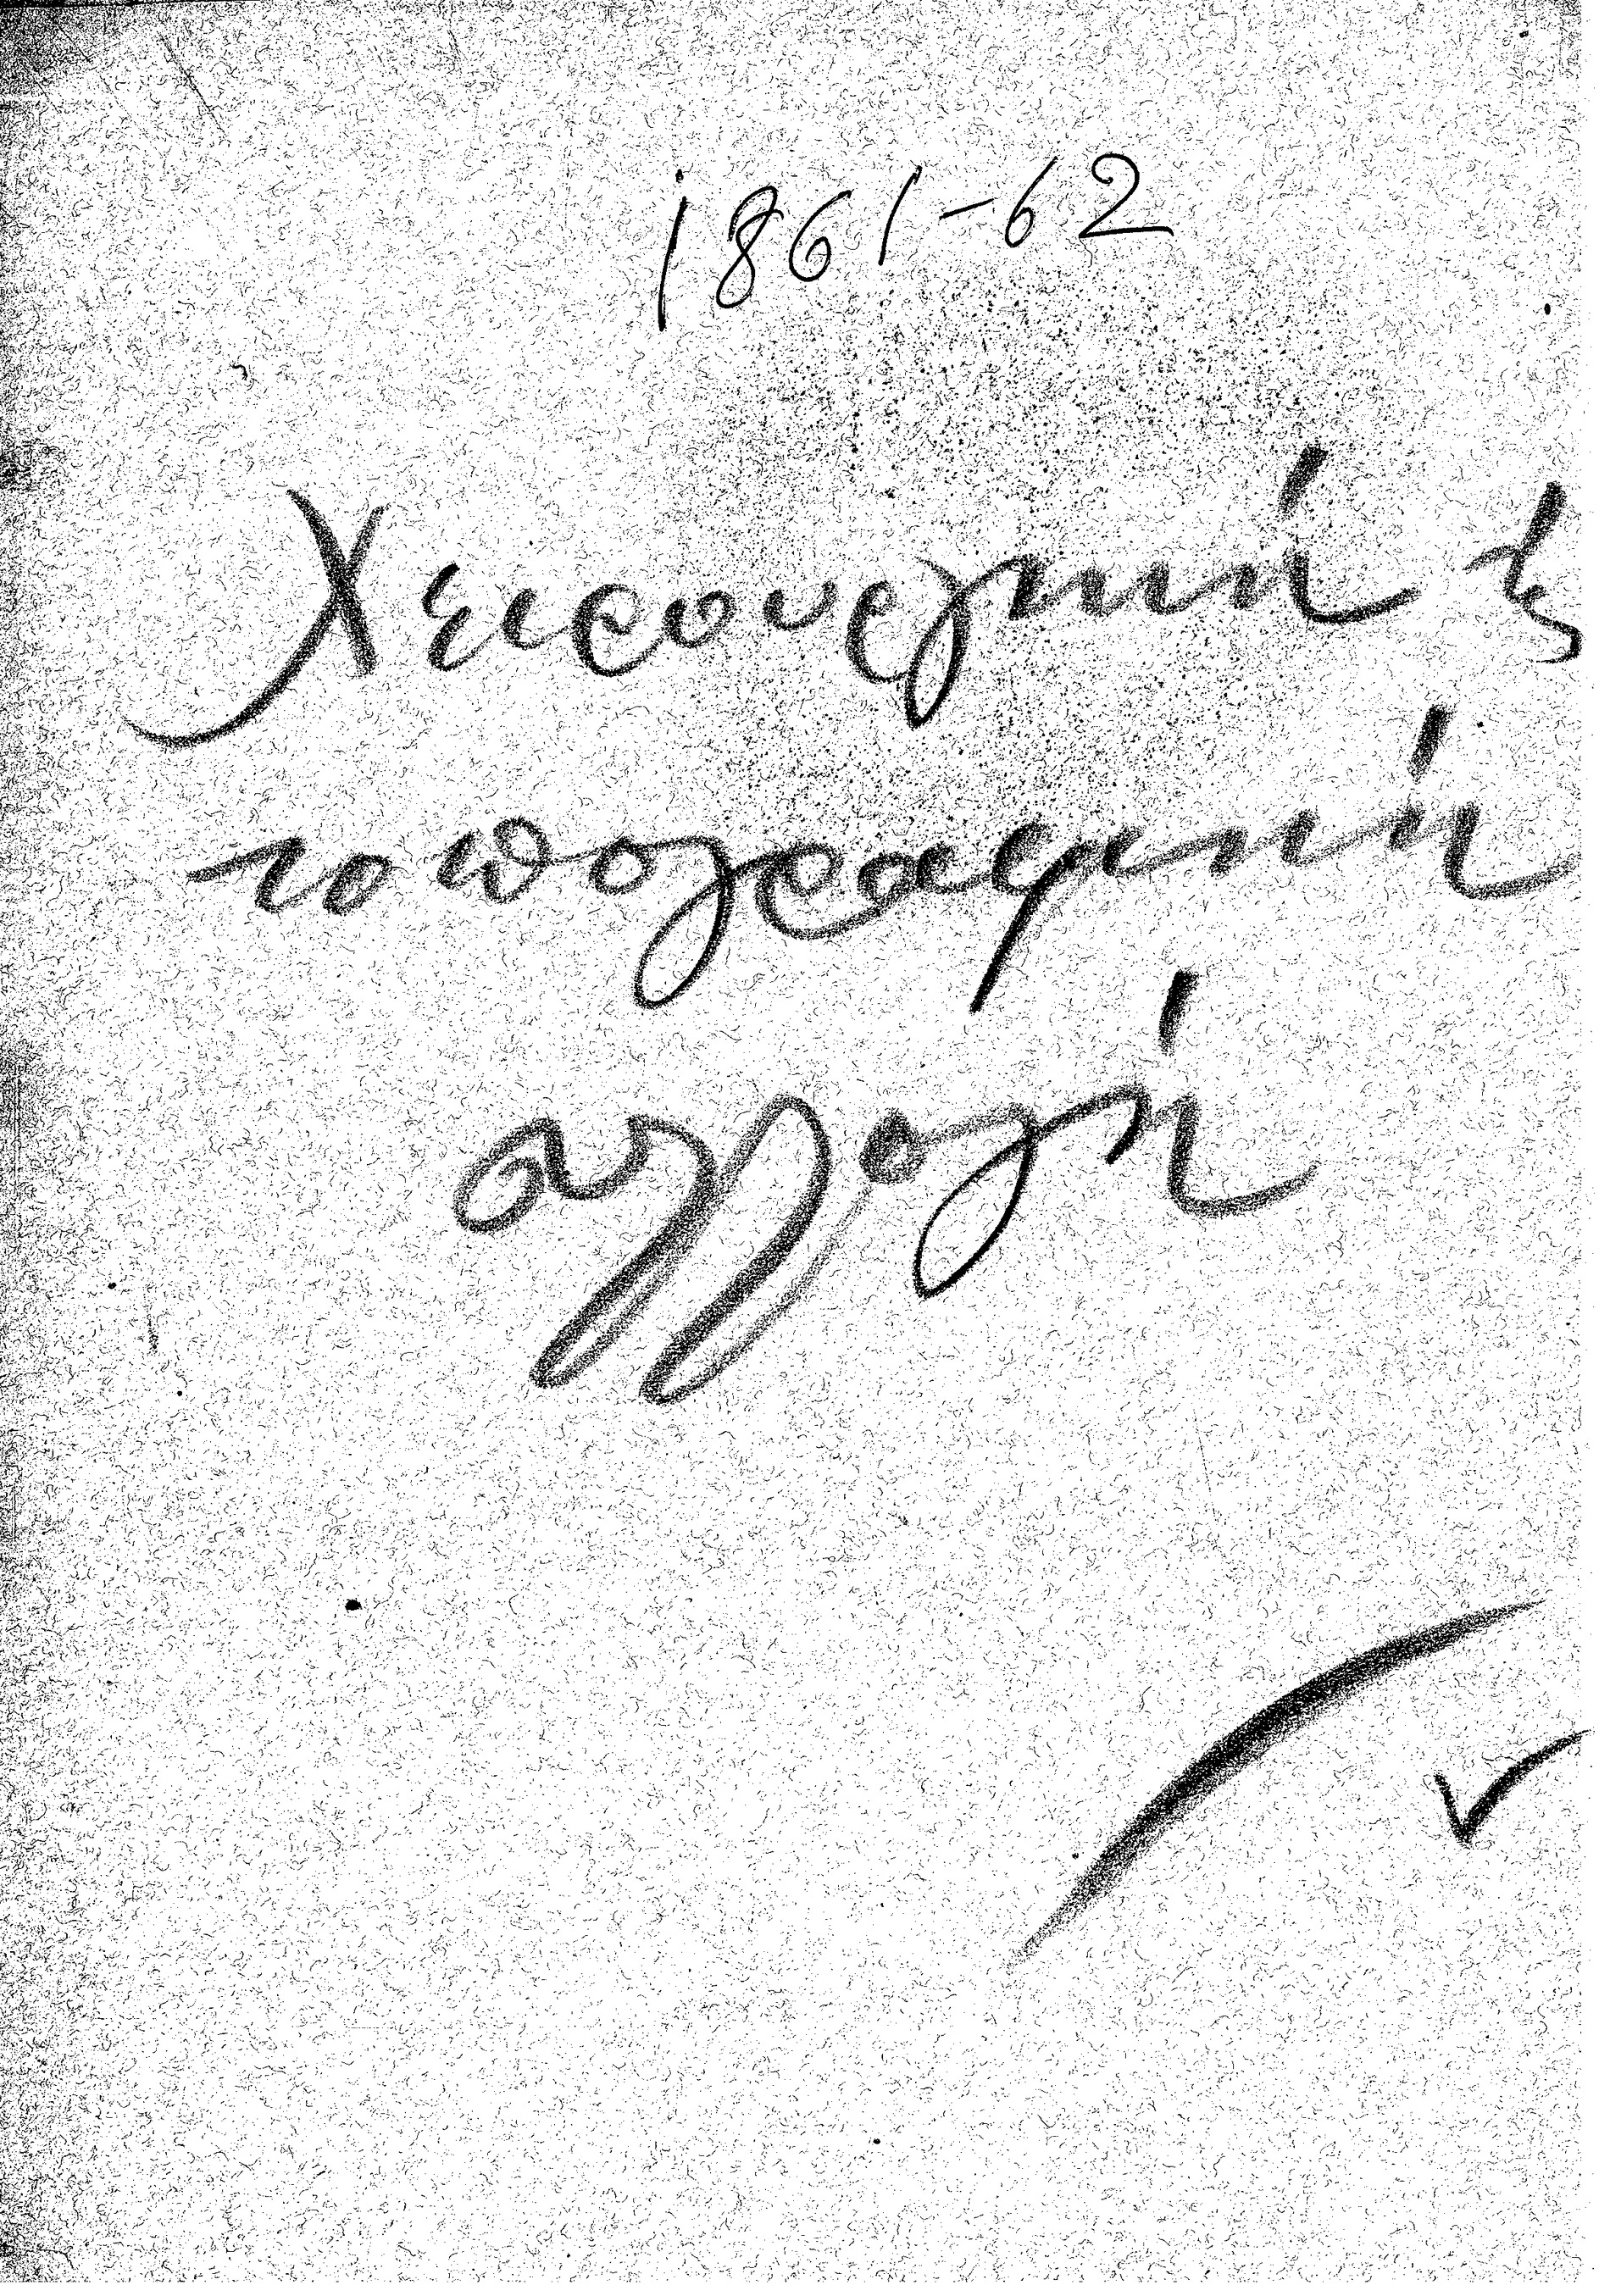 1861-62
Χειρουργική ϗ
τοπογραφική